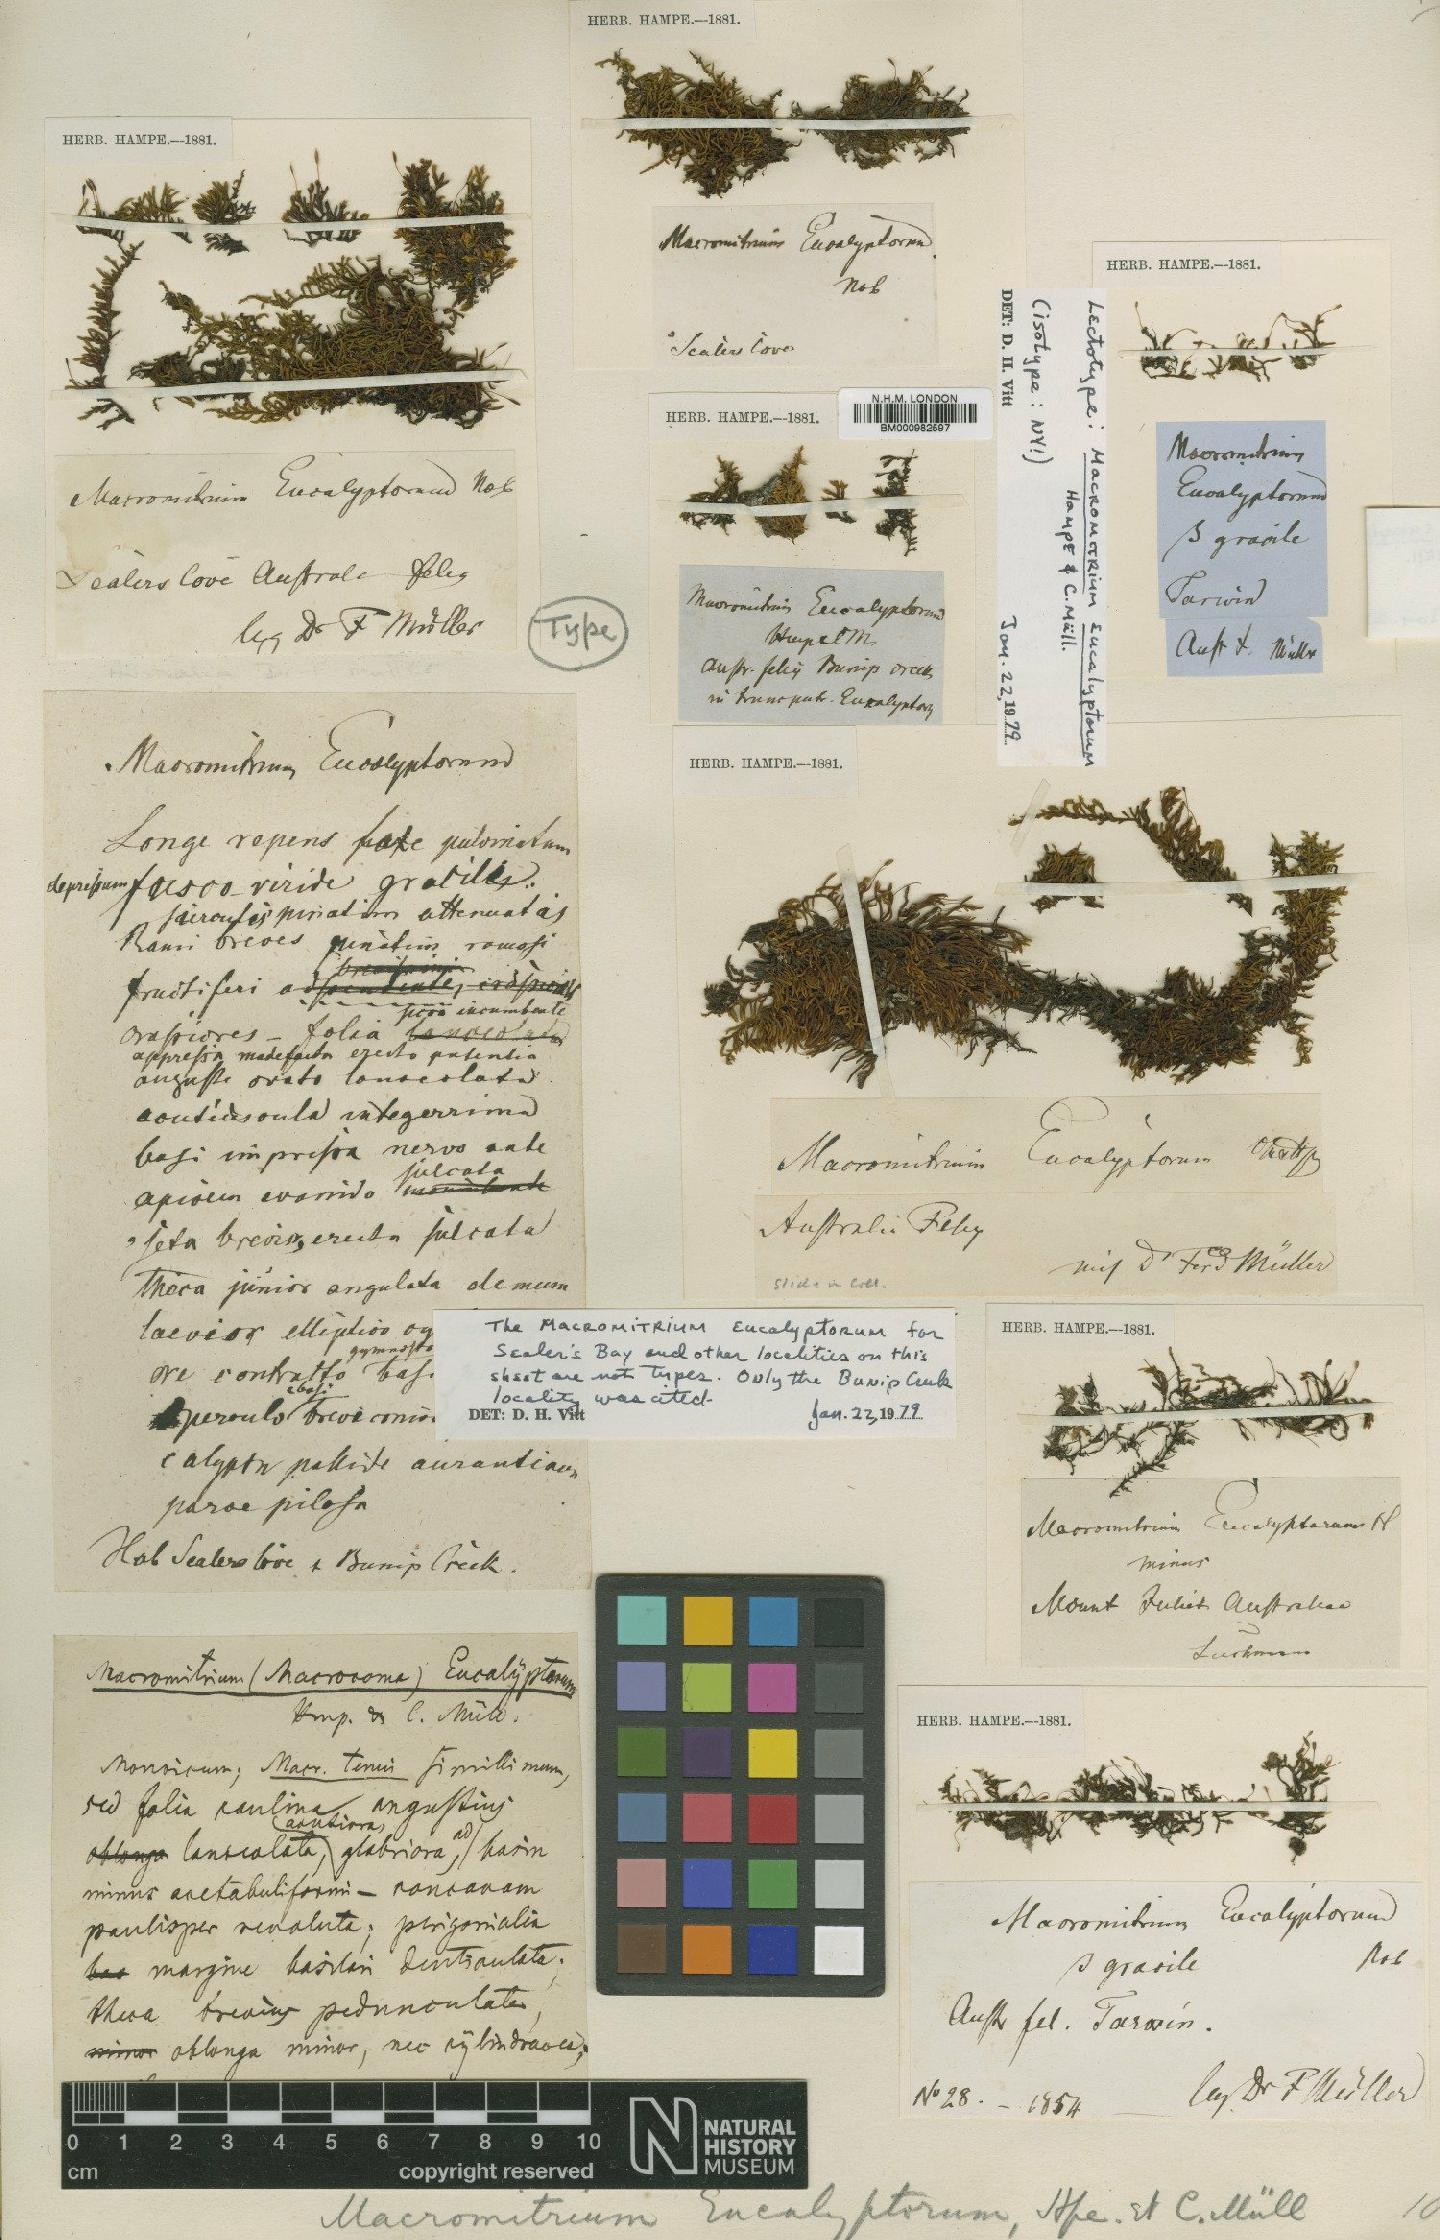 HERB. HAMPE.—1881.
Macromitrium Eucalyptorum
Nob
Sealers Cove
HERB. HAMPE.—1881.
Macromitrium Eucalyptorum Nob
Sealers Cove Australa felix
leg Dr F Müller
Type
HERB. HAMPE.—1881.
Macromitrium
Eucalyptorum
β gracile
Tarwin
Aust f. Müller
Lectotype: Macromitrium eucalyptorum
Hampe & C. Müll.
(isotype: NY!)
DET: D. H. Vitt Jan. 22, 1979.
N.H.M. LONDON
BM000982597
HERB. HAMPE.—1881.
Macromitrium Eucalyptorum
Hampe & M.
Austr. felix Bunip creek
in trunc putr. Eucalyptorum
Macromitrium Eucalyptorum
Longe repens late pulvinatum
depressum fusco viride gracile.
pinnatim attenuatis
Rami breves pinatim ramosi
fructiferi adscendente,
incumbente
crassiores – folia lanceolata
appressa madefacta erecto patentia
anguste ovato lanceolata
acutiuscula integerrima
basi impressa nervo ante
sulcata
apicem evanido
seta brevis, erecta sulcata
theca junior angulata demum
laevior elliptico
gymnosto
ore contracto basi
operculo e basi breve conico
calyptra pallide aurantiaca
parce pilosa
Hab Sealers Cove & Bunip Creek.
HERB. HAMPE.—1881.
Macromitrium Eucalyptorum
Australia Felix
mis Dr Ferd Müller
Slide in Coll.
The Macromitrium eucalyptorum for
Sealer's Bay and other localities on this
sheet are not types. Only the Bunip Creek
locality was cited.
DET: D. H. Vitt Jan. 22, 1979
HERB. HAMPE.—1881.
Macromitrium Eucalyptorum H
minus
Mount Juliet Australiae
Luehmann
Macromitrium (Macrocoma) Eucalyptorum
Hmp. & C. Müll.
Monoicum; Macr. tenui simillimum,
sed folia caulina angustius
acutiora,
oblonga lanceolata, glabriora, ad basin
minus acetabuliformi – concavam
paulisper revoluta; perigonialia
bas margine basilari denticulata;
theca brevius pedunculata,
minor oblonga minor, nec cylindracea;
HERB. HAMPE.—1881.
Macromitrium Eucalyptorum
β gracile Nob
Austr fel. Tarwin.
No 28. – 1854 – leg. Dr F Müller
0 1 2 3 4 5 6 7 8 9 10
cm copyright reserved
N NATURAL
HISTORY
MUSEUM
Macromitrium Eucalyptorum, Hpe. et C. Müll
10